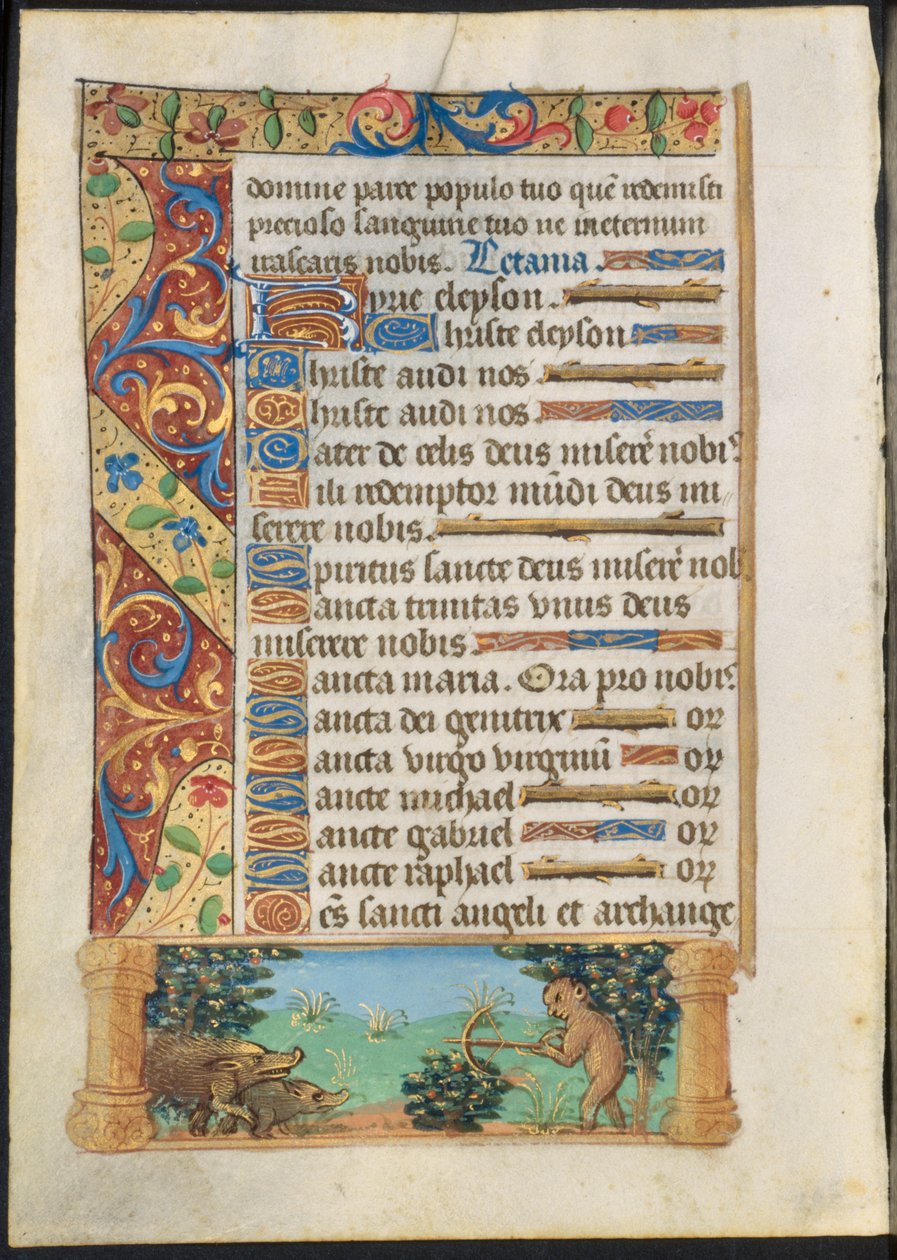 domine parce populo tuo quē redemisti
precioso sanguine tuo ne ineternum
irascaris nobis. Letania
Kyrie eleyson
Christe eleyson
Christe audi nos
Christe audi nos
Pater de celis deus miserē nobis
Fili redemptor mūdi deus mi
serere nobis.
Spiritus sancte deus miserē nob
Sancta trinitas vnus deus
miserere nobis
Sancta maria. Ora pro nobis
Sancta dei genitrix or
Sancta virgo virginū or
Sancte michael or
Sancte gabriel or
Sancte raphael or
Oēs sancti angeli et archange